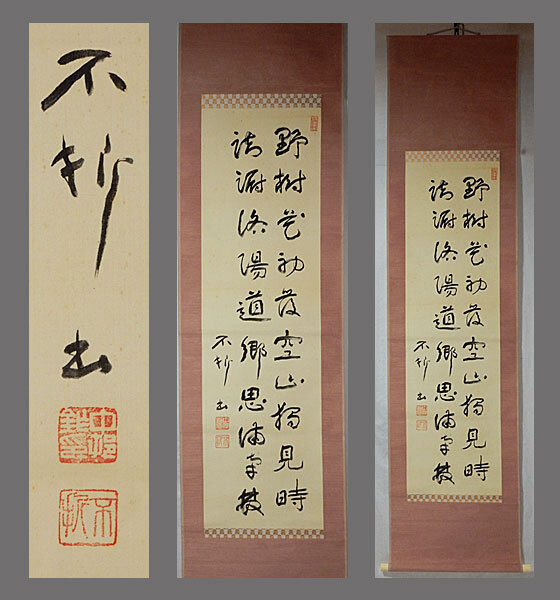 不折書
不折
野樹花初發空山獨見時
踟躕洛陽道鄉思滿南枝
不折書
野樹花初發空山獨見時
踟躕洛陽道鄉思滿南枝
不折書